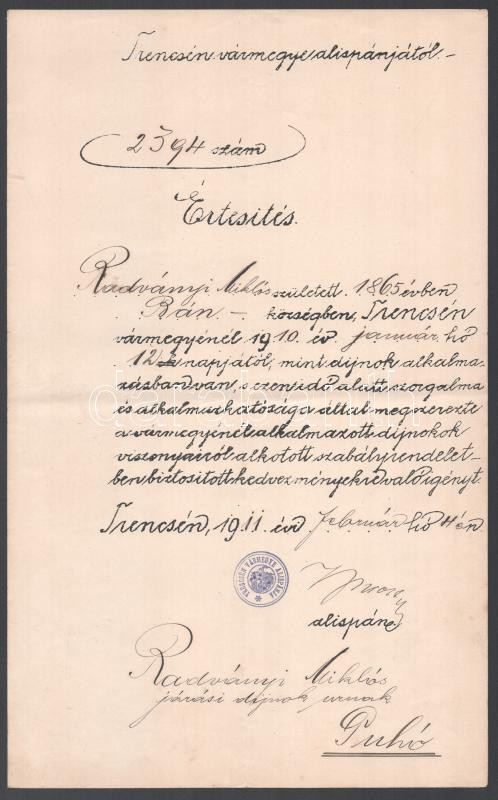 Trencsén vármegye alispánjától.
2394 szám
Értesítés.
Radványi Miklós született 1865 évben
Bán – községben, Trencsén
vármegyénél 1910. év január hó
12 napjától, mint dijnok alkalma-
zásban van, s ezen idő alatt szorgalma
és alkalmazhatósága által megszerezte
a vármegyénél alkalmazott dijnokok
viszonyairól alkotott szabályrendelet-
ben biztosított kedvezményekre való igényt.
Trencsén, 1911. év február hó 4 én
TRENCSÉN VÁRMEGYE ALISPÁNJA
alispán.
Radványi Miklós
járási dijnok urnak
Puhó